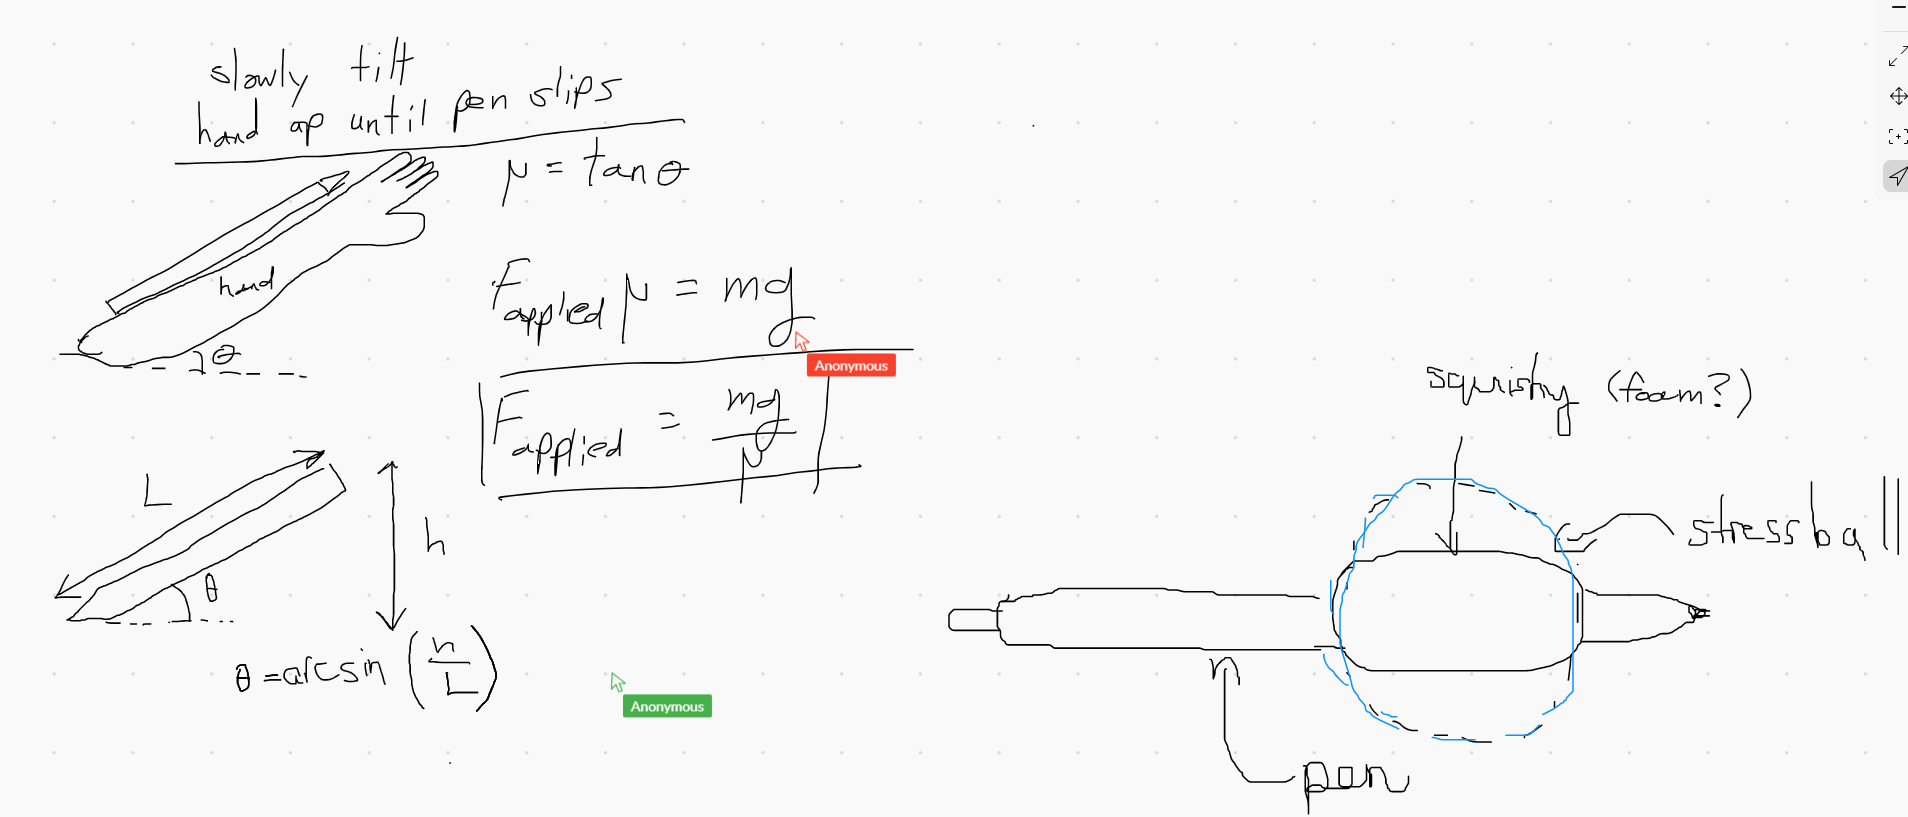 slowly tilt
hand up until pen slips
μ = tan θ
hand
θ
F applied μ = mg
Anonymous
F applied = mg/μ
L
h
θ
θ = arcsin (h/L)
Anonymous
squishy (foam?)
stress ball
pen